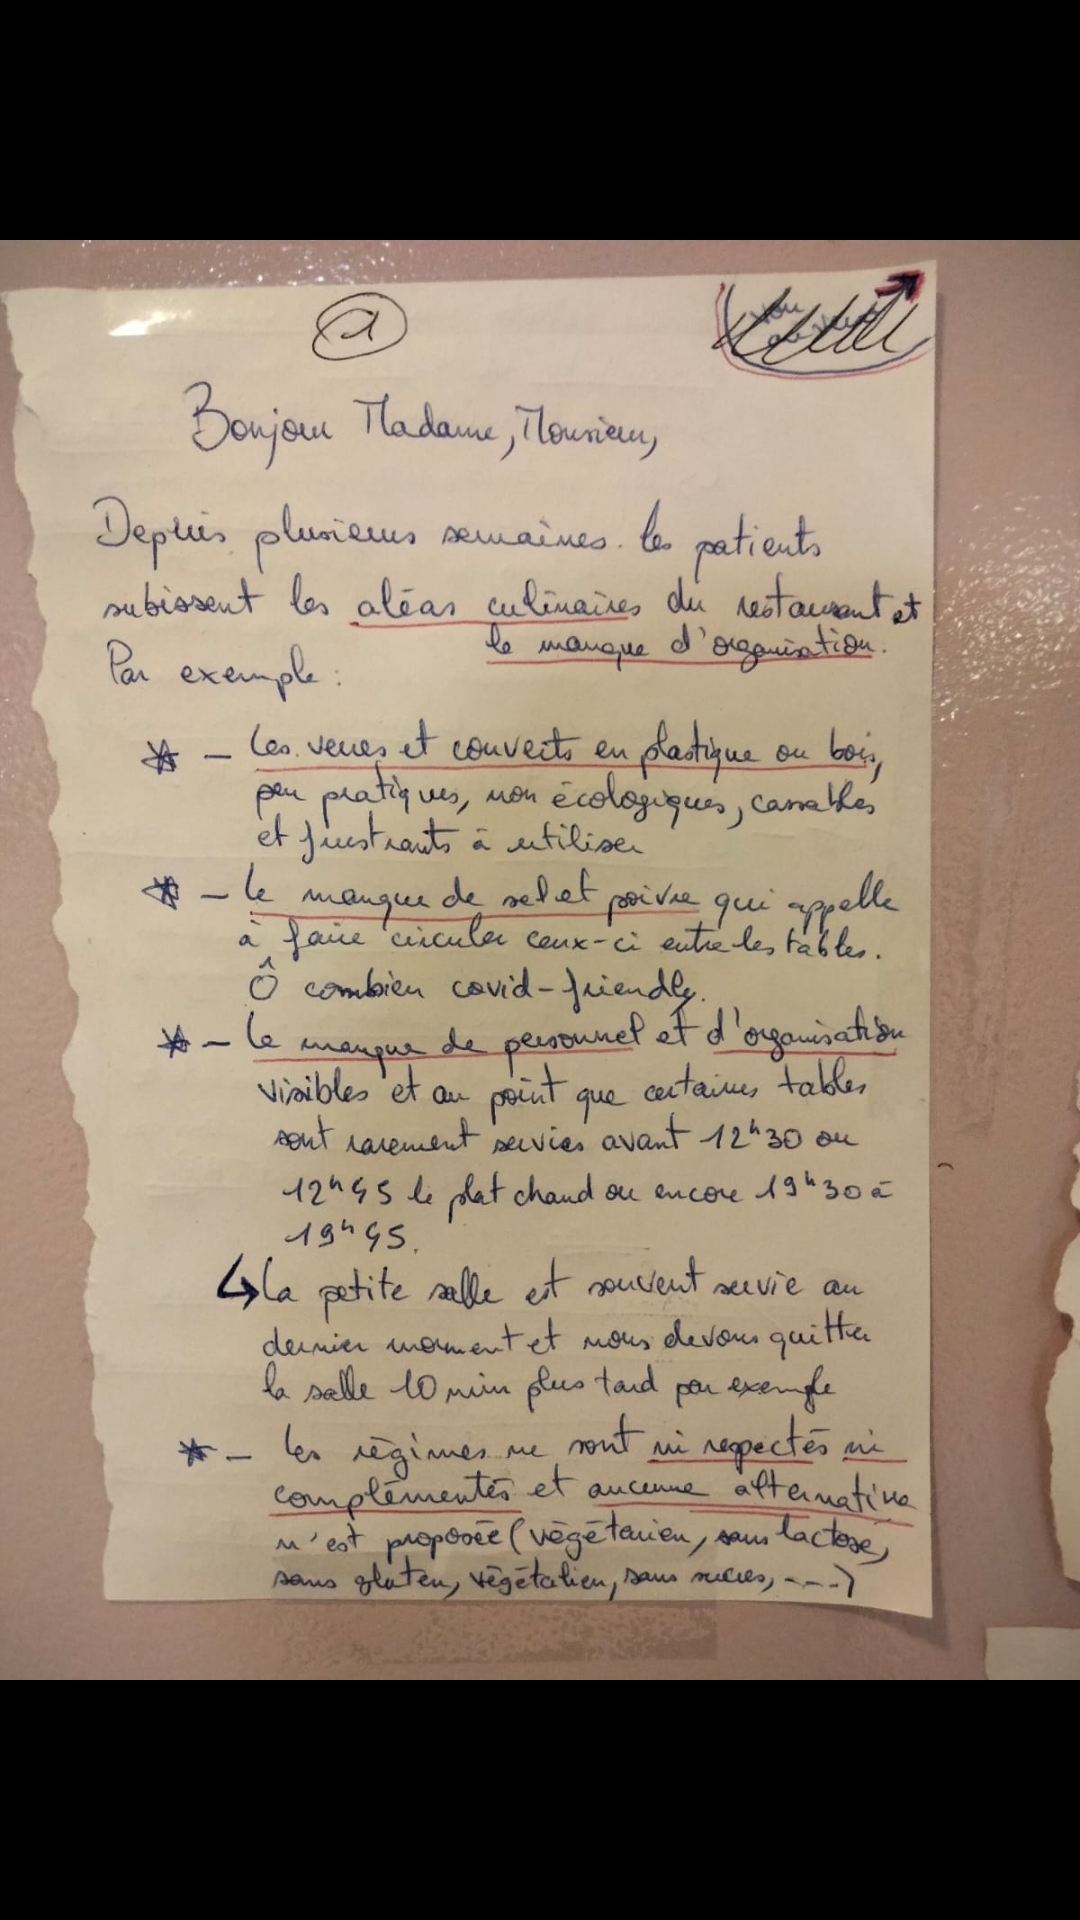 1
Bonjour Madame, Monsieur,
Depuis plusieurs semaines. les patients
subissent les aléas culinaires du restaurant et
le manque d'organisation.
Par exemple :
- Les verres et couverts en plastique ou bois,
peu pratiques, non écologiques, cassables
et frustrants à utiliser
- le manque de sel et poivre qui appelle
à faire circuler ceux-ci entre les tables.
Ô combien covid-friendly.
- le manque de personnel et d'organisation
visibles et au point que certaines tables
sont rarement servies avant 12h30 ou
12h45 le plat chaud ou encore 19h30 à
19h45.
↳ La petite salle est souvent servie au
dernier moment et nous devons quitter
la salle 10 min plus tard par exemple
- les régimes ne sont ni respectés ni
complémentés et aucune alternative
n'est proposée (végétarien, sans lactose,
sans gluten, végétalien, sans sucres, ----)